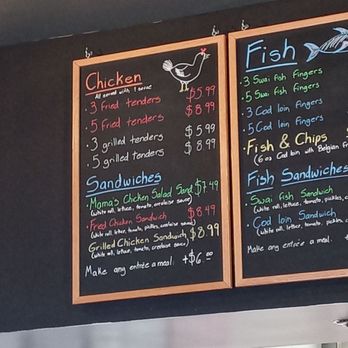 Chicken
All served with 1 sauce
• 3 Fried tenders $5.99
• 5 Fried tenders $8.99
• 3 grilled tenders $5.99
• 5 grilled tenders $8.99
Sandwiches
• Mama's Chicken Salad Sand $7.49
(white roll, lettuce, tomato, creatine sauce)
• Fried Chicken Sandwich $8.49
(white roll, letter, tomato, pickles,
• Grilled Chicken Sandwich $8.99
(white roll, lettuce, tomato,
Make any entrée a meal. +$6.00
Fish
• 3 Swai fish fingers
• 5 Swai fish fingers
• 3 Cod loin fingers
• 5 Cod loin fingers
• Fish & Chips
(6 oz Cod loin with Belgian Fri
Fish Sandwiches
• Swai fish Sandwich
(white roll, lettuce, tomato, pickles,
• Cod loin Sandwich
(white roll, lettuce, tomato, pickles,
Make any entrée a meal.